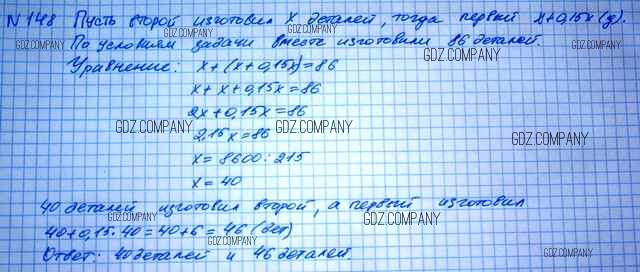 N 148 Пусть второй изготовил x деталей, тогда первый x+0,15x (д).
По условиям задачи вместе изготовили 86 деталей.
Уравнение: x+(x+0,15x)=86
x+x+0,15x=86
2x+0,15x=86
2,15x=86
x=8600:215
x=40
40 деталей изготовил второй, а первый изготовил
40+0,15·40=40+6=46 (дет)
Ответ: 40 деталей и 46 деталей.
GDZ.COMPANY
GDZ.COMPANY
GDZ.COMPANY
GDZ.COMPANY
GDZ.COMPANY
GDZ.COMPANY
GDZ.COMPANY
GDZ.COMPANY
GDZ.COMPANY
GDZ.COMPANY
GDZ.COMPANY
GDZ.COMPANY